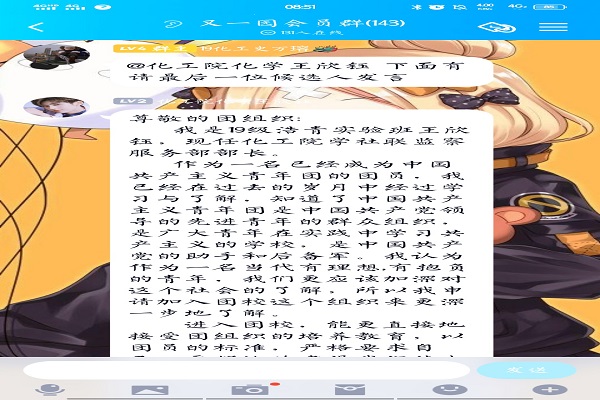 08:51
4G
又一团会员群(143)
LV4 群主
@化工院化学王欣钰 下面有
请最后一位候选人发言
LV2
尊敬的团组织:
我是19级浩青实验班王欣
钰,现任化工院学社联监察
服务部部长。
作为一名已经成为中国
共产主义青年团的团员,我
已经在过去的岁月中经过学
习与了解,知道了中国共产
主义青年团是中国共产党领
导的先进青年的群众组织,
是广大青年在实践中学习共
产主义的学校,是中国共产
党的助手和后备军。我认为
作为一名当代有理想,有抱负
的青年,我们更应该加深对
这个社会的了解,所以我申
请加入团校这个组织来更深
一步地了解。
进入团校,能更直接地
接受团组织的培养教育,以
团员的标准,严格要求自
发送